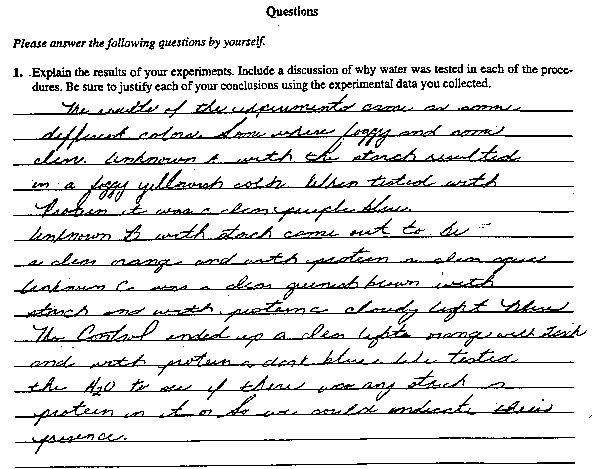 Questions
Please answer the following questions by yourself.
1. Explain the results of your experiments. Include a discussion of why water was tested in each of the proce-
dures. Be sure to justify each of your conclusions using the experimental data you collected.
The results of the experiments came as some
different colors. Some where foggy and some
clear. Unknown A with the starch resulted
in a foggy yellowish color. When tested with
Protein it was a clear purple blue.
Unknown B with starch came out to be
a clear orange and with protein a clear
Unknown C was a clear greenest brown with
starch and with protein a cloudy light blue
The Control ended up a clear lighte orange with
and with protein a dark blue. We tested
the H2O to see if there was any starch or
protein in it or so we could indicate their
presence.